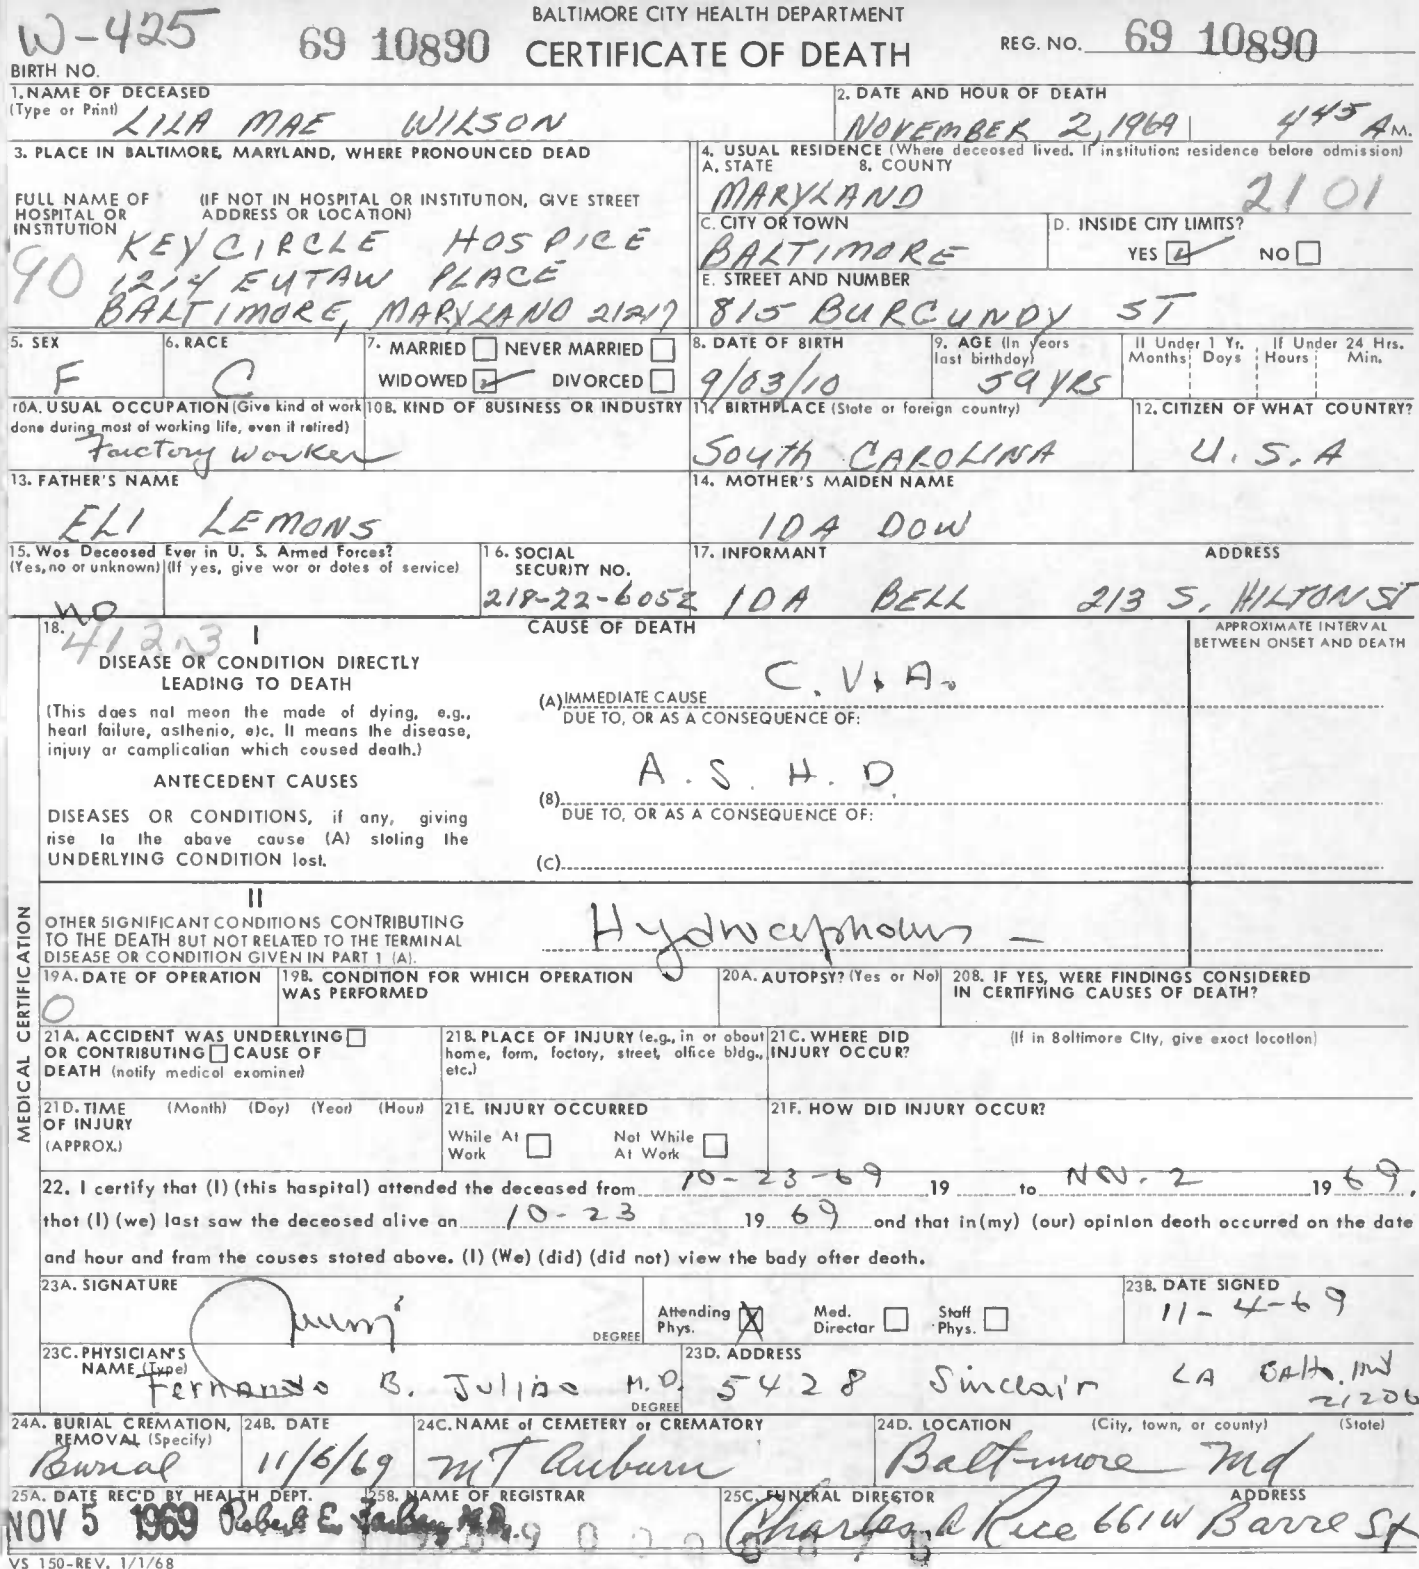 BALTIMORE CITY HEALTH DEPARTMENT
W-425 69 10890 CERTIFICATE OF DEATH REG. NO. 69 10890
BIRTH NO.
1. NAME OF DECEASED
(Type or Print) LILA MAE WILSON
2. DATE AND HOUR OF DEATH
NOVEMBER 2, 1969 4 45 A M.
3. PLACE IN BALTIMORE, MARYLAND, WHERE PRONOUNCED DEAD
FULL NAME OF HOSPITAL OR INSTITUTION
(IF NOT IN HOSPITAL OR INSTITUTION, GIVE STREET ADDRESS OR LOCATION)
90 KEY CIRCLE HOSPICE
1214 EUTAW PLACE
BALTIMORE, MARYLAND 21217
4. USUAL RESIDENCE (Where deceased lived. If institution: residence before admission)
A. STATE B. COUNTY
MARYLAND 2101
C. CITY OR TOWN
BALTIMORE
D. INSIDE CITY LIMITS?
YES NO
E. STREET AND NUMBER
815 BURGUNDY ST
5. SEX
F
6. RACE
C
7. MARRIED NEVER MARRIED
WIDOWED DIVORCED
8. DATE OF BIRTH
9/03/10
9. AGE (In years last birthday)
59 YRS
If Under 1 Yr. If Under 24 Hrs.
Months Days Hours Min.
10A. USUAL OCCUPATION (Give kind of work done during most of working life, even if retired)
Factory Worker
10B. KIND OF BUSINESS OR INDUSTRY
11. BIRTHPLACE (State or foreign country)
South CAROLINA
12. CITIZEN OF WHAT COUNTRY?
U.S.A
13. FATHER'S NAME
ELI LEMONS
14. MOTHER'S MAIDEN NAME
IDA DOW
15. Was Deceased Ever in U. S. Armed Forces?
(Yes, no or unknown) (If yes, give war or dates of service)
NO
16. SOCIAL SECURITY NO.
218-22-6052
17. INFORMANT ADDRESS
IDA BELL 213 S. HILTON ST
MEDICAL CERTIFICATION
18. 412.3 I
CAUSE OF DEATH
APPROXIMATE INTERVAL BETWEEN ONSET AND DEATH
DISEASE OR CONDITION DIRECTLY LEADING TO DEATH
(This does not mean the mode of dying, e.g., heart failure, asthenia, etc. It means the disease, injury or complication which caused death.)
ANTECEDENT CAUSES
DISEASES OR CONDITIONS, if any, giving rise to the above cause (A) stating the UNDERLYING CONDITION last.
(A) IMMEDIATE CAUSE C.V.A.
DUE TO, OR AS A CONSEQUENCE OF:
(B) A.S.H.D.
DUE TO, OR AS A CONSEQUENCE OF:
(C)
II
OTHER SIGNIFICANT CONDITIONS CONTRIBUTING TO THE DEATH BUT NOT RELATED TO THE TERMINAL DISEASE OR CONDITION GIVEN IN PART 1 (A).
Hydrocephalus -
19A. DATE OF OPERATION
0
19B. CONDITION FOR WHICH OPERATION WAS PERFORMED
20A. AUTOPSY? (Yes or No)
20B. IF YES, WERE FINDINGS CONSIDERED IN CERTIFYING CAUSES OF DEATH?
21A. ACCIDENT WAS UNDERLYING OR CONTRIBUTING CAUSE OF DEATH (notify medical examiner)
21B. PLACE OF INJURY (e.g., in or about home, farm, factory, street, office bldg., etc.)
21C. WHERE DID INJURY OCCUR? (If in Baltimore City, give exact location)
21D. TIME OF INJURY (APPROX.) (Month) (Day) (Year) (Hour)
21E. INJURY OCCURRED
While At Work Not While At Work
21F. HOW DID INJURY OCCUR?
22. I certify that (I) (this hospital) attended the deceased from 10-23-69 19 to Nov. 2 19 69,
that (I) (we) last saw the deceased alive on 10-23 19 69 and that in (my) (our) opinion death occurred on the date
and hour and from the causes stated above. (I) (We) (did) (did not) view the body after death.
23A. SIGNATURE
DEGREE
Attending Phys. Med. Director Staff Phys.
23B. DATE SIGNED
11-4-69
23C. PHYSICIAN'S NAME (Type)
Fernando B. Juliao M.D.
DEGREE
23D. ADDRESS
5428 Sinclair LA Balto. Md 21206
24A. BURIAL CREMATION, REMOVAL (Specify)
Burial
24B. DATE
11/6/69
24C. NAME of CEMETERY or CREMATORY
Mt Auburn
24D. LOCATION (City, town, or county) (State)
Baltimore Md
25A. DATE REC'D BY HEALTH DEPT.
NOV 5 1969
25B. NAME OF REGISTRAR
Robert E. Farber, M.D.
25C. FUNERAL DIRECTOR ADDRESS
Charles A Rice 661 W Barre St
VS 150-REV. 1/1/68